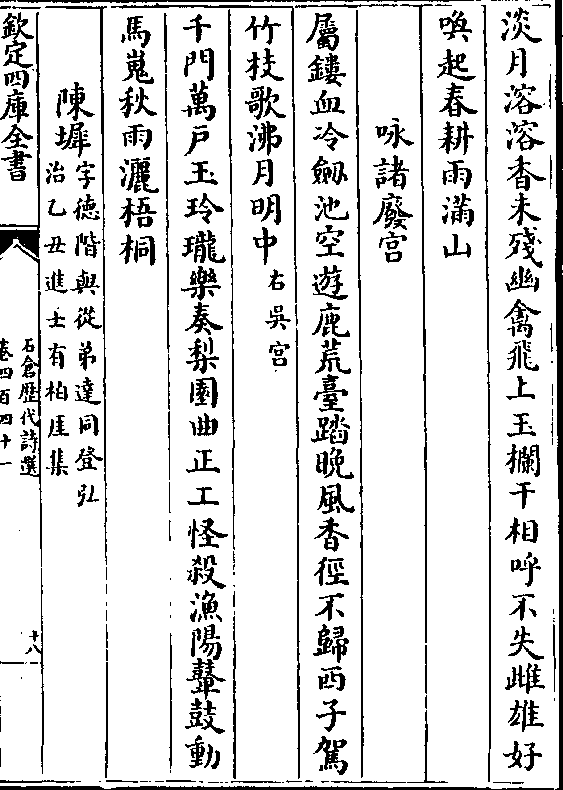 淡月溶溶香未殘幽禽飛上玉欄干相呼不失雌雄好
喚起春耕雨滿山
咏諸廢宫
屬鏤血冷劒池空遊鹿荒臺踏晚風香徑不歸西子駕
竹枝歌沸月明中右吳宫
千門萬戶玉玲瓏樂奏梨園曲正工怪殺漁陽鼙鼓動
馬嵬秋雨灑梧桐
陳墀字德階與從弟達同登弘
治乙丑進士有柏厓集
欽定四庫全書
石倉歷代詩選
卷四百四十一
十八